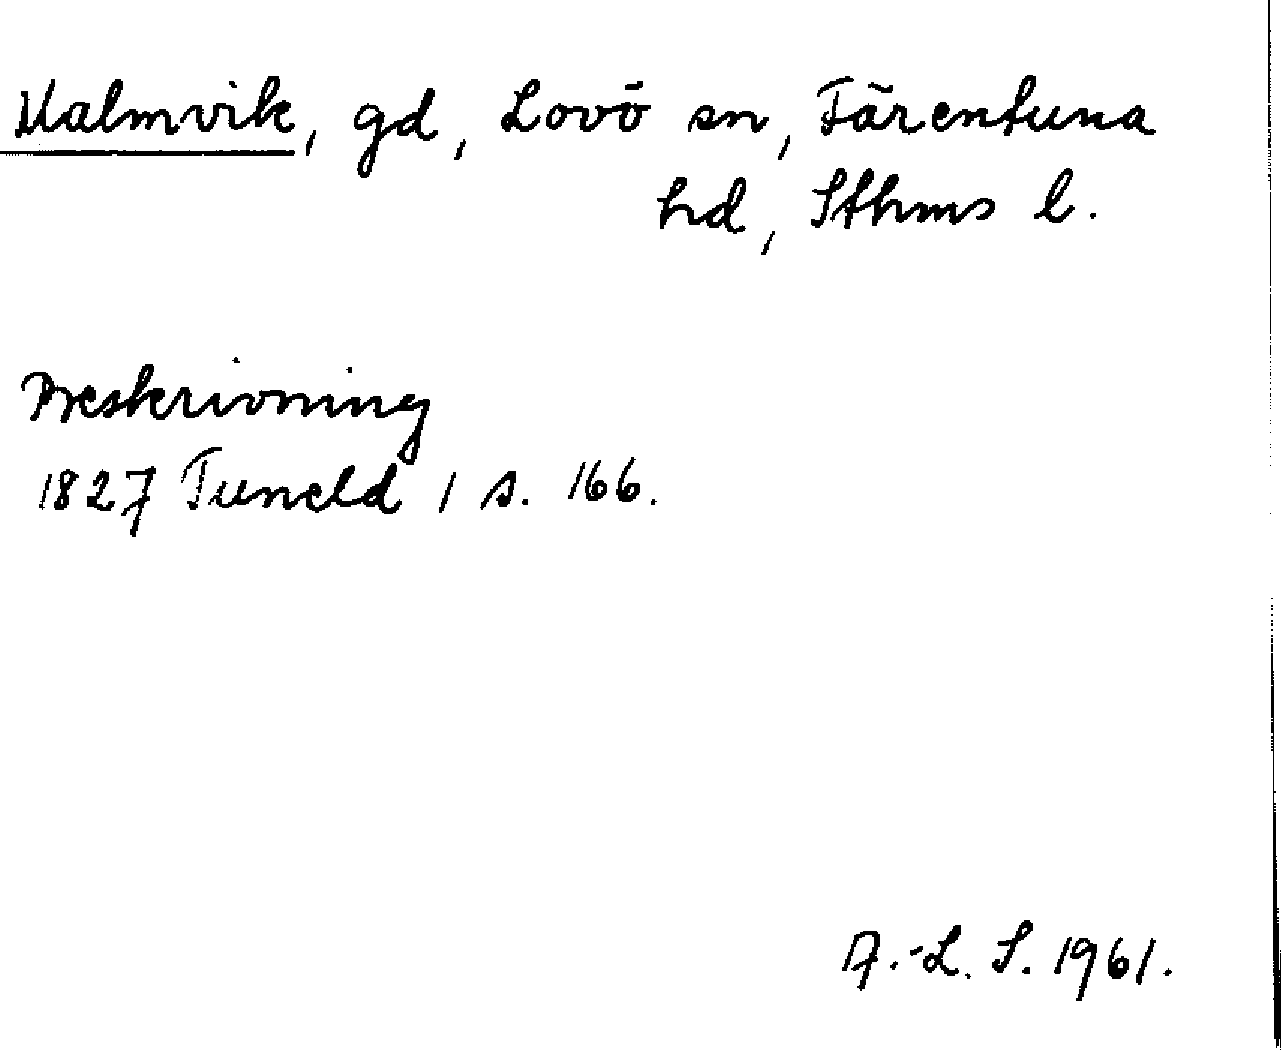 Malmvik, gd, Lovö sn, Färentuna
hd, Sthms l.
Beskrivning
1827 Tuneld 1 s. 166.
A.-L. S. 1961.